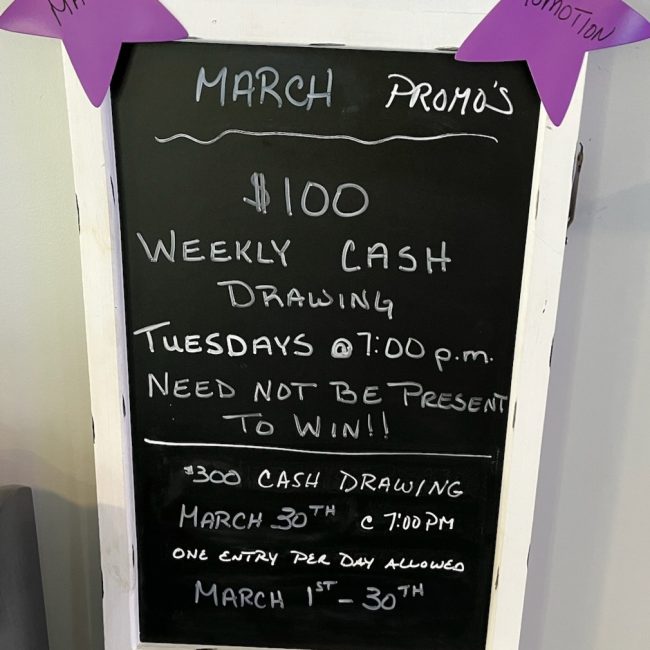 MARCH PROMO'S
$100
WEEKLY CASH
DRAWING
TUESDAYS @ 7:00 p.m.
NEED NOT BE PRESENT
TO WIN!!
$300 CASH DRAWING
MARCH 30TH @ 7:00 PM
ONE ENTRY PER DAY ALLOWED
MARCH 1ST - 30TH